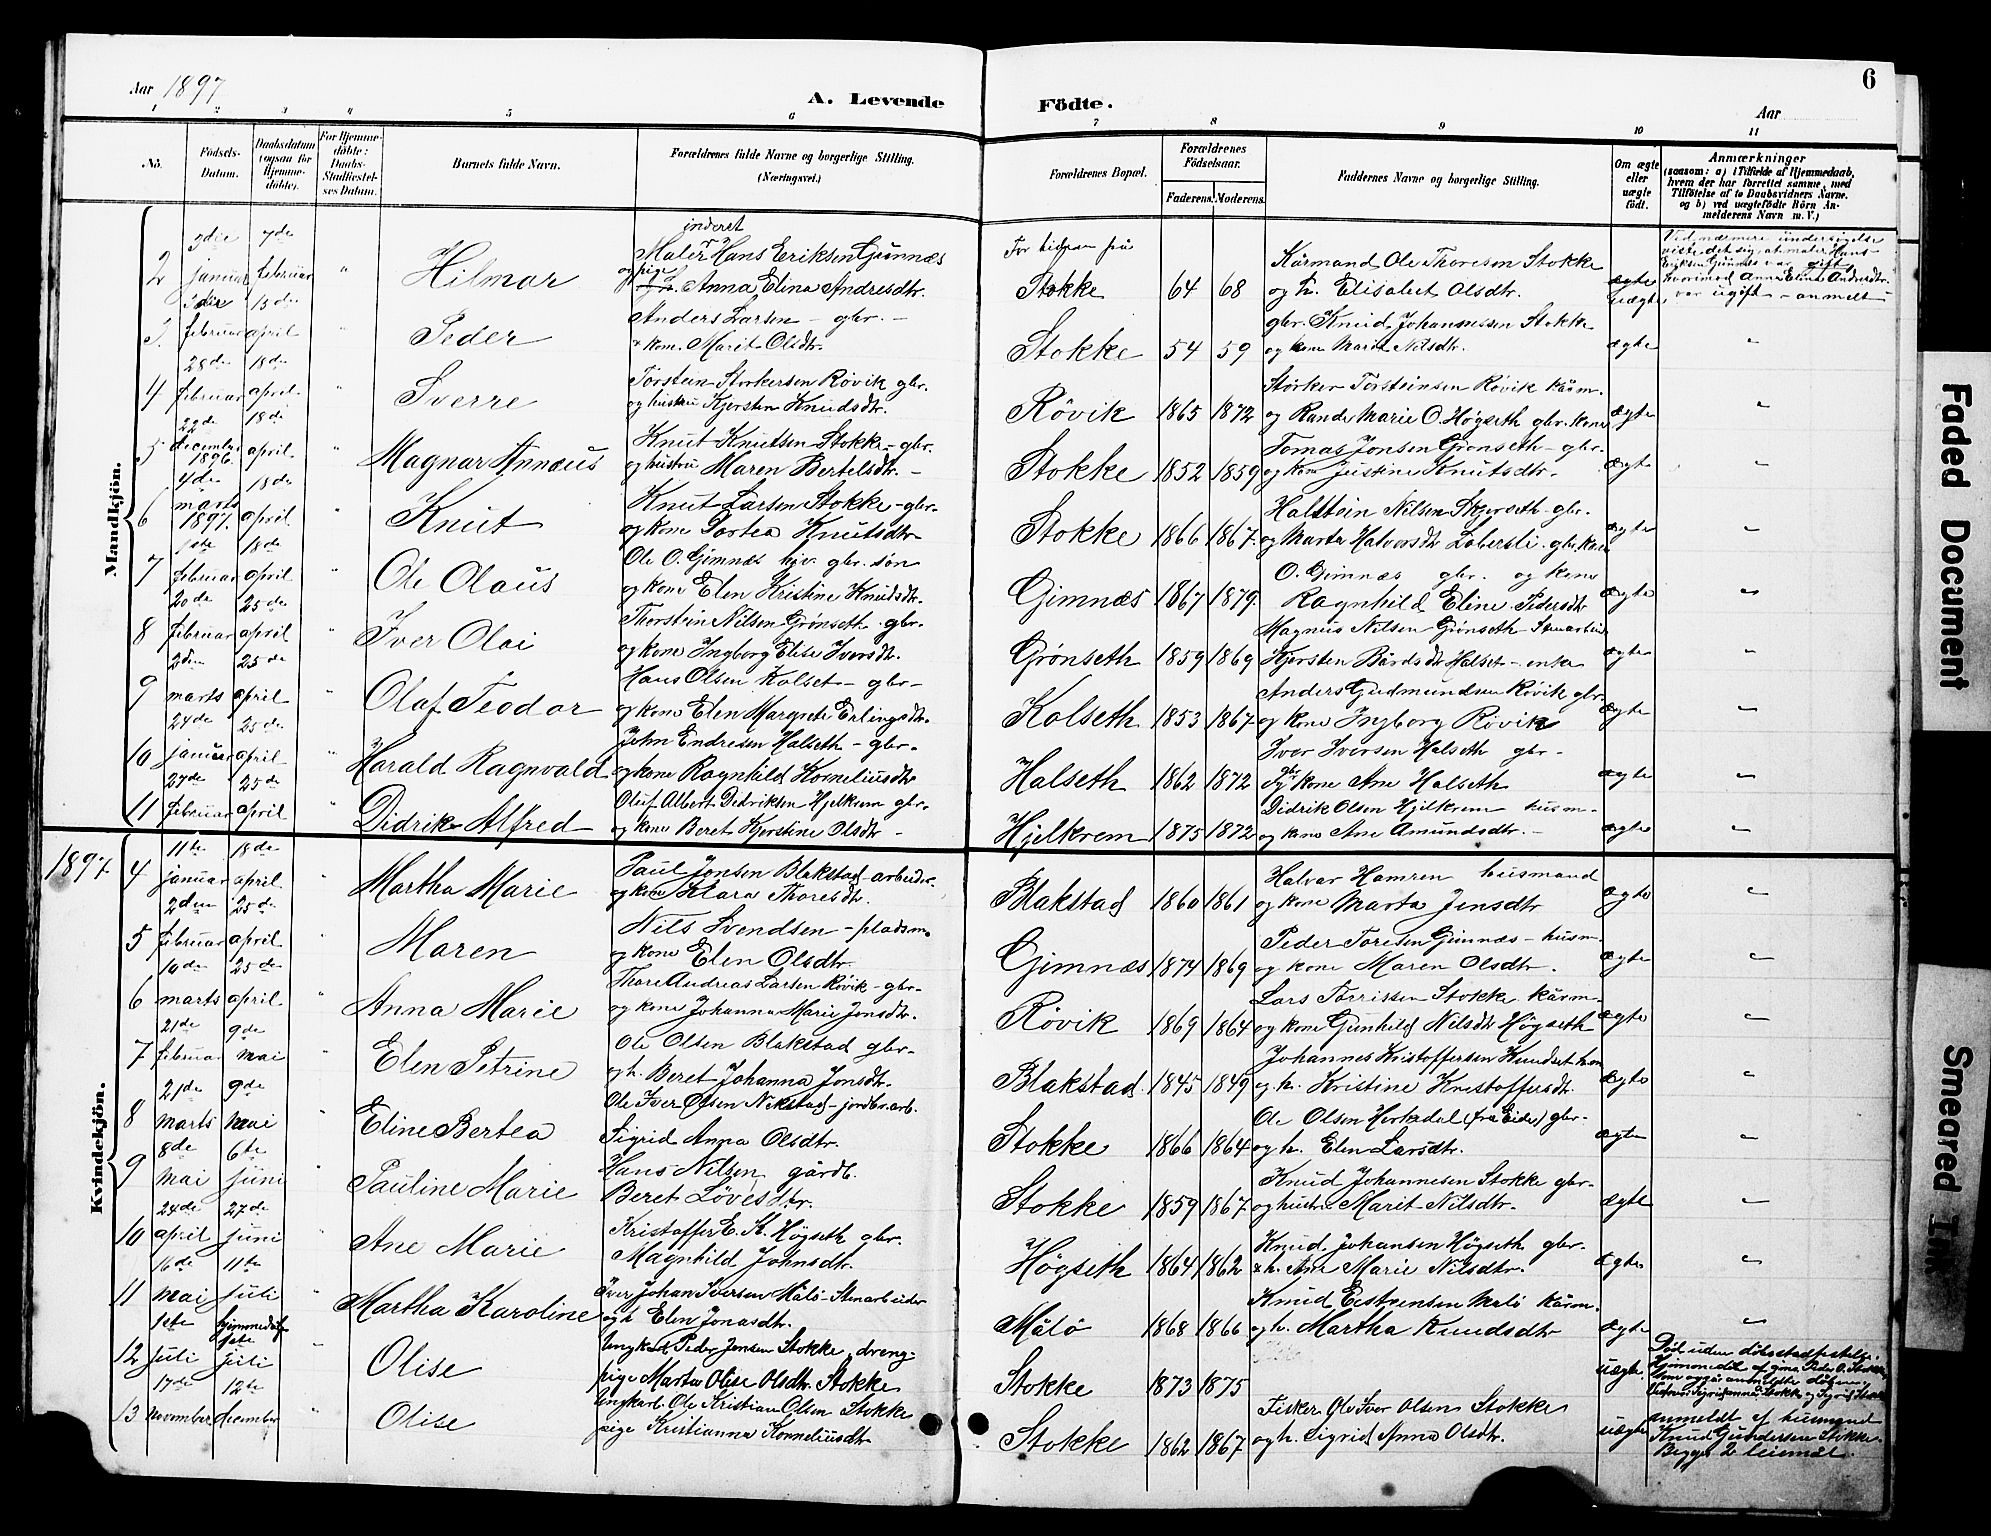 Aar 1897
A. Levende Födte.
Aar
6
1 2 3 4 5 6 7 8 9 10 11
No. Födsels-Datum. Daabsdatum (ogsaa for Hjemmedöbte). For Hjemmedöbte: Daabs-Stadfæstelses Datum. Barnets fulde Navn. Forældrenes fulde Navne og borgerlige Stilling. (Næringsvei.) Forældrenes Bopæl. Forældrenes Födselsaar. Faderens. Moderens. Faddernes Navne og borgerlige Stilling. Om ægte eller uægte födt. Anmærkninger (saasom: a) i Tilfælde af Hjemmedaab, hvem der har forrettet samme, med Tilföielse af to Daabsvidners Navne. og b) ved uægtefödte Börn Anmelderens Navn m. V.)
Mandkjön.
2 3die januar 7de februar " Hilmar Maler Hans Eriksen Gunnæs
og pige Anna Elina Andresdtr. For tidfan fra Stokke 64 68 Kårmand Ole Thoresen Stokke
og h. Elisabet Olsdtr. ægte uægte Ved nærmere undersøgelse
viste det sig, at maler Hans
Eriksen Gunnæs var gift,
hvorimod Anna Elina Andresdtr.
var ugift – anmelt
3. 3die februar 13de april Peder Anders Larsen – gbr. –
& kone. Marit Olsdtr. Stokke 54 59 gbr. Knud Johannessen Stokke
og kone Marit Nilsdtr. ægte "
4 28de februar 18de april " Sverre Torstein Storkersen Røvik gbr.
og hustru Kjersten Knudsdtr. Røvik 1865 1872 Størker Torsteinsen Røvik kårm.
og Rande Marie O. Høgseth gbr. kone ægte "
5 22de december 1896. 18de april " Magnar Annæus Knut Knutsen Stokke – gbr.
og hustru Maren Bertelsdtr. – Stokke 1852 1859 Tomas Jonsen Grønseth – gbr.
og kone Justine Knutsdtr. ægte "
6 4de marts 1897. 18de april " Knut Knut Larsen Stokke – gbr.
og kone Dortea Knutsdtr Stokke 1866 1867. Halstein Nilsen Skjerseth gbr.
og Marta Halvorsdtr Lobersli. gbr. kone ægte "
7 1ste februar 18de april " Ole Olaus Ole O. Gimnæs gbr. søn
og kone Elen Kristine Knudsdtr. Gimnæs 1867 1879. O. Gimnæs gbr. og kone
Ragnhild Eline Pedersdtr ægte "
8 20de februar 25de april " Iver Olai Thorstein Nilsen Grønseth gbr.
og kone Ingborg Elise Iversdtr. Grønseth 1859 1869 Magnus Nilsen Grønseth Stenarbeider
Kjersten Bårdsdtr Halset – enke ægte "
9 2den marts 25de april " Olaf Teodor Hans Olsen Kolset – gbr –
og kone Elen Margrete Erlingsdtr. Kolseth 1853 1867 Anders Gudmundsen Røvik gbr
og kone Ingborg Røvik ægte "
10 24de januar 25de april " Harald Ragnvald John Endresen Halseth – gbr.
og kone Ragnhild Korneliusdtr Halseth 1862 1872 Iver Iversen Halseth gbr –
kone Ane Halseth ægte "
11 27de februar 25de april " Didrik Alfred Oluf Albert Didriksen Hjelkrem gbr.
og kone Beret Kjerstine Olsdtr – Hjelkrem 1875 1872 Didrik Olsen Hjelkrem husm –
og kone Ane Amundsdtr. – ægte "
1897.
Kvindekjön.
4 11te januar 18de april " Martha Marie Paul Jonsen Blakstad – arbeider.
og kone Klara Thoresdtr. Blakstad 1860 1861 Halvar Hamren husmand
og kone Marta Jensdtr ægte "
5 2den februar 25de april " Maren Nils Svendsen – pladsm.
og kone Elen Olsdtr. Gimnæs 1874 1869 Peder Toresen Gimnæs – husm.
og kone Maren Olsdtr. ægte "
6 10de marts 25de april " Anna Marie Thore Andreas Larsen Røvik – gbr –
og kone Johanna Marie Jonsdtr. Røvik 1869 1864 Lars Torrissen Stokke kårm –
og kone Gunhild Nilsdtr Høgseth ægte "
7 21de februar 9de mai " Elen Petrine Ole Olsen Blakstad gbr –
og h. Beret Johanna Jonsdtr. Blakstad 1845 1849 Johannes Kristoffersen
og h. Kristine Kristoffersdtr. ægte "
8 21de marts 9de mai " Eline Bertea Ole Iver Olsen – jordbr. arb.
Sigrid Anna Olsdtr. Stokke 1866 1864 Ole Olsen (fra Eide) gbr –
og h. Elen Larsdtr. ægte "
9 8de mai 6te juni " Pauline Marie Hans Nilsen gårdb.
Beret Løvesdtr. Stokke 1859 1867 Knud Johannesen Stokke gbr –
og hustru Marit Nilsdtr. ægte "
10 24de april 27de juni " Ane Marie Kristoffer E. St. Høgseth gbr.
Magnhild Johnsdtr. Høgseth 1864 1862 Knud Johansen Høgseth gbr –
& h. Ane Marie Nilsdtr. ægte "
11 16de mai 11te juli Martha Karoline Iver Johan Iversen Målø – Stenarbeider
og h Elen Jonasdtr. Målø 1868 1866 Knud Eistensen Målø kårm.
og h. Martha Knudsdtr ægte "
12 1ste juli hjemmedøbt 1ste juli " Olise Ungkarl Peder Jensen Stokke, dreng –
pige Marta Olise Olsdtr. Stokke Stokke 1873 1875 uægte Død uden dåbsstadfæstelse.
Hjemmedøbt af Peder O. Stokke
som også anmeldte
13 17de november 12te december Olise Ungkarl Ole Kristian Olsen Stokke
pige Kristianna Korneliusdtr Stokke 1862 1867 Fisker Ole Iver Olsen Stokke
og h. Sigrid Anna Olsdtr. uægte anmeldt af husmand
Knud Gundersen Stokke.
Begges 2 leiemål.
Faded Document
Smeared Ink